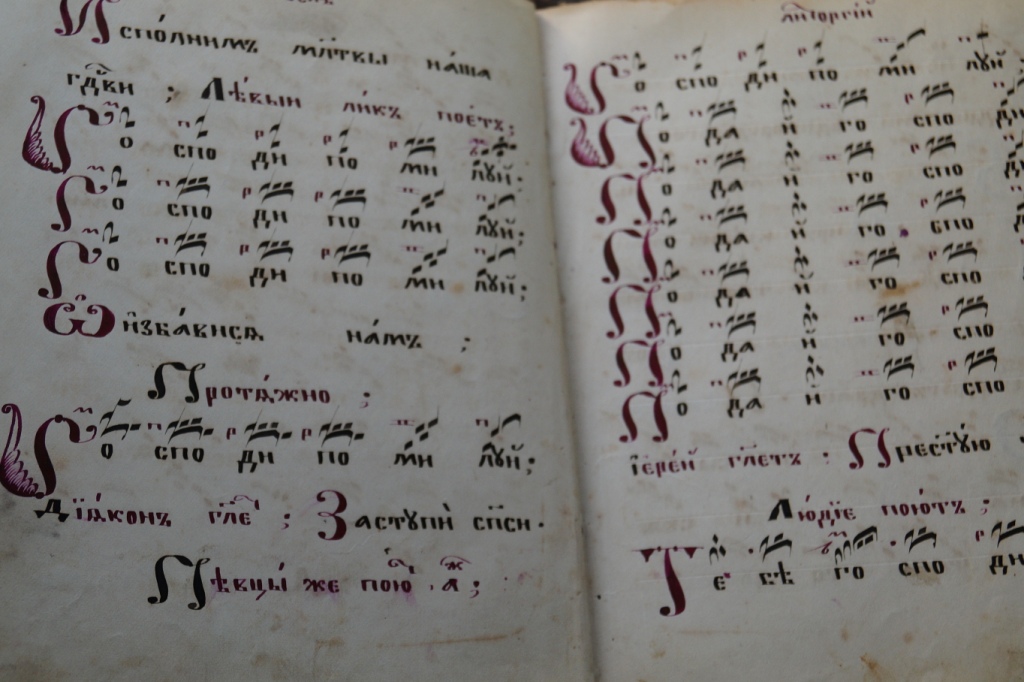 Исполнимъ мл҃твы на́ша
гд҇ви ; Лѣвыи ли́къ пое́тъ ;
Го спо ди по ми луй :
Го спо ди по ми луй ;
Го спо ди по ми луй ;
Ѿ и҆зба́витисѧ на́мъ ;
Протѧ́жно ;
Го спо ди по ми луй ;
Дїа́конъ гл҃е ; Заступѝ сп҃си .
Пѣвцы́ же пою́ ;
Го спо ди по ми луй
По да й го
По да й го спо
По да й го спо
По да й го спо
По да й го спо
По да й го спо
Їере́й гл҃етъ : Прест҃ꙋ́ю
Лю́дїе пою́тъ ;
Те бѣ го спо ди